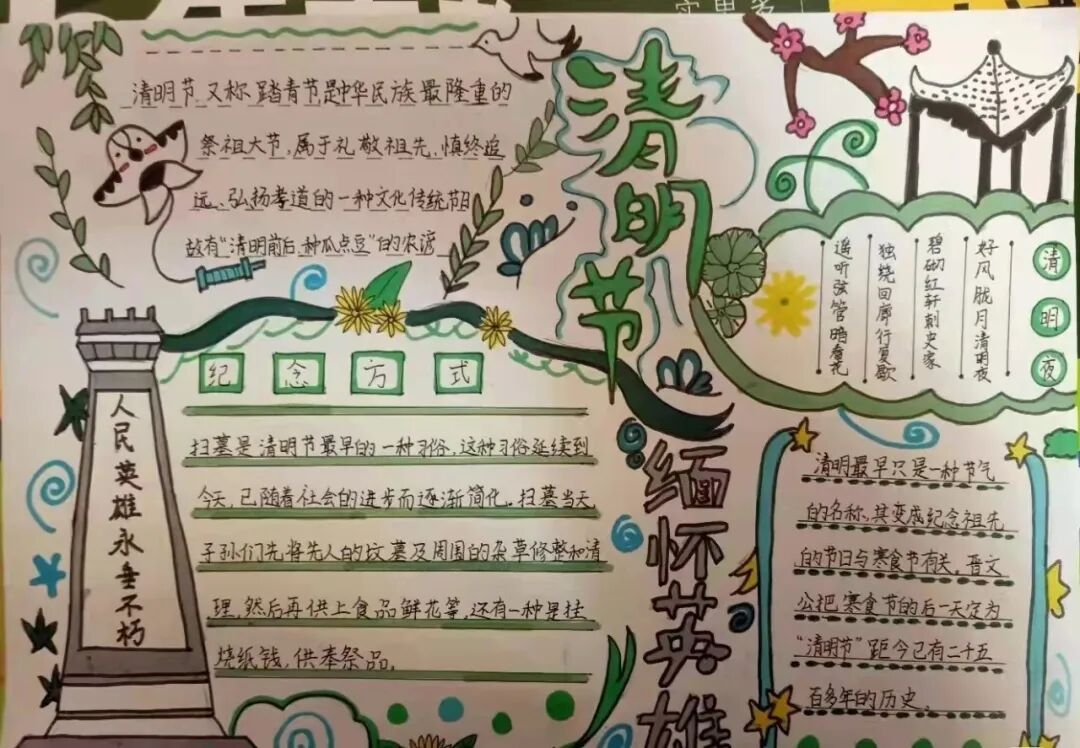 清明节又称踏青节,是中华民族最隆重的
祭祖大节,属于礼敬祖先、慎终追
远、弘扬孝道的一种文化传统节日
故有“清明前后,种瓜点豆”的农谚
清明节
清明夜
好风胧月清明夜
碧砌红轩刺史家
独绕回廊行复歇
遥听弦管暗看花
纪念方式
扫墓是清明节最早的一种习俗,这种习俗延续到
今天,已随着社会的进步而逐渐简化。扫墓当天
子孙们先将先人的坟墓及周围的杂草修整和清
理,然后再供上食品鲜花等,还有一种是挂
烧纸钱,供奉祭品。
人民英雄永垂不朽
缅怀英雄
清明最早只是一种节气
的名称,其变成纪念祖先
的节日与寒食节有关。晋文
公把寒食节的后一天定为
“清明节”距今已有二千五
百多年的历史。